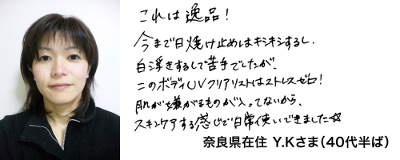 これは逸品！
今まで日焼け止めはキシキシするし、
白浮きするしで苦手でしたが、
このボディUVクリアリストはストレスゼロ！
肌が嫌がるものが入ってないから、
スキンケアする感じで日常使いできました☆
奈良県在住 Y.Kさま（40代半ば）